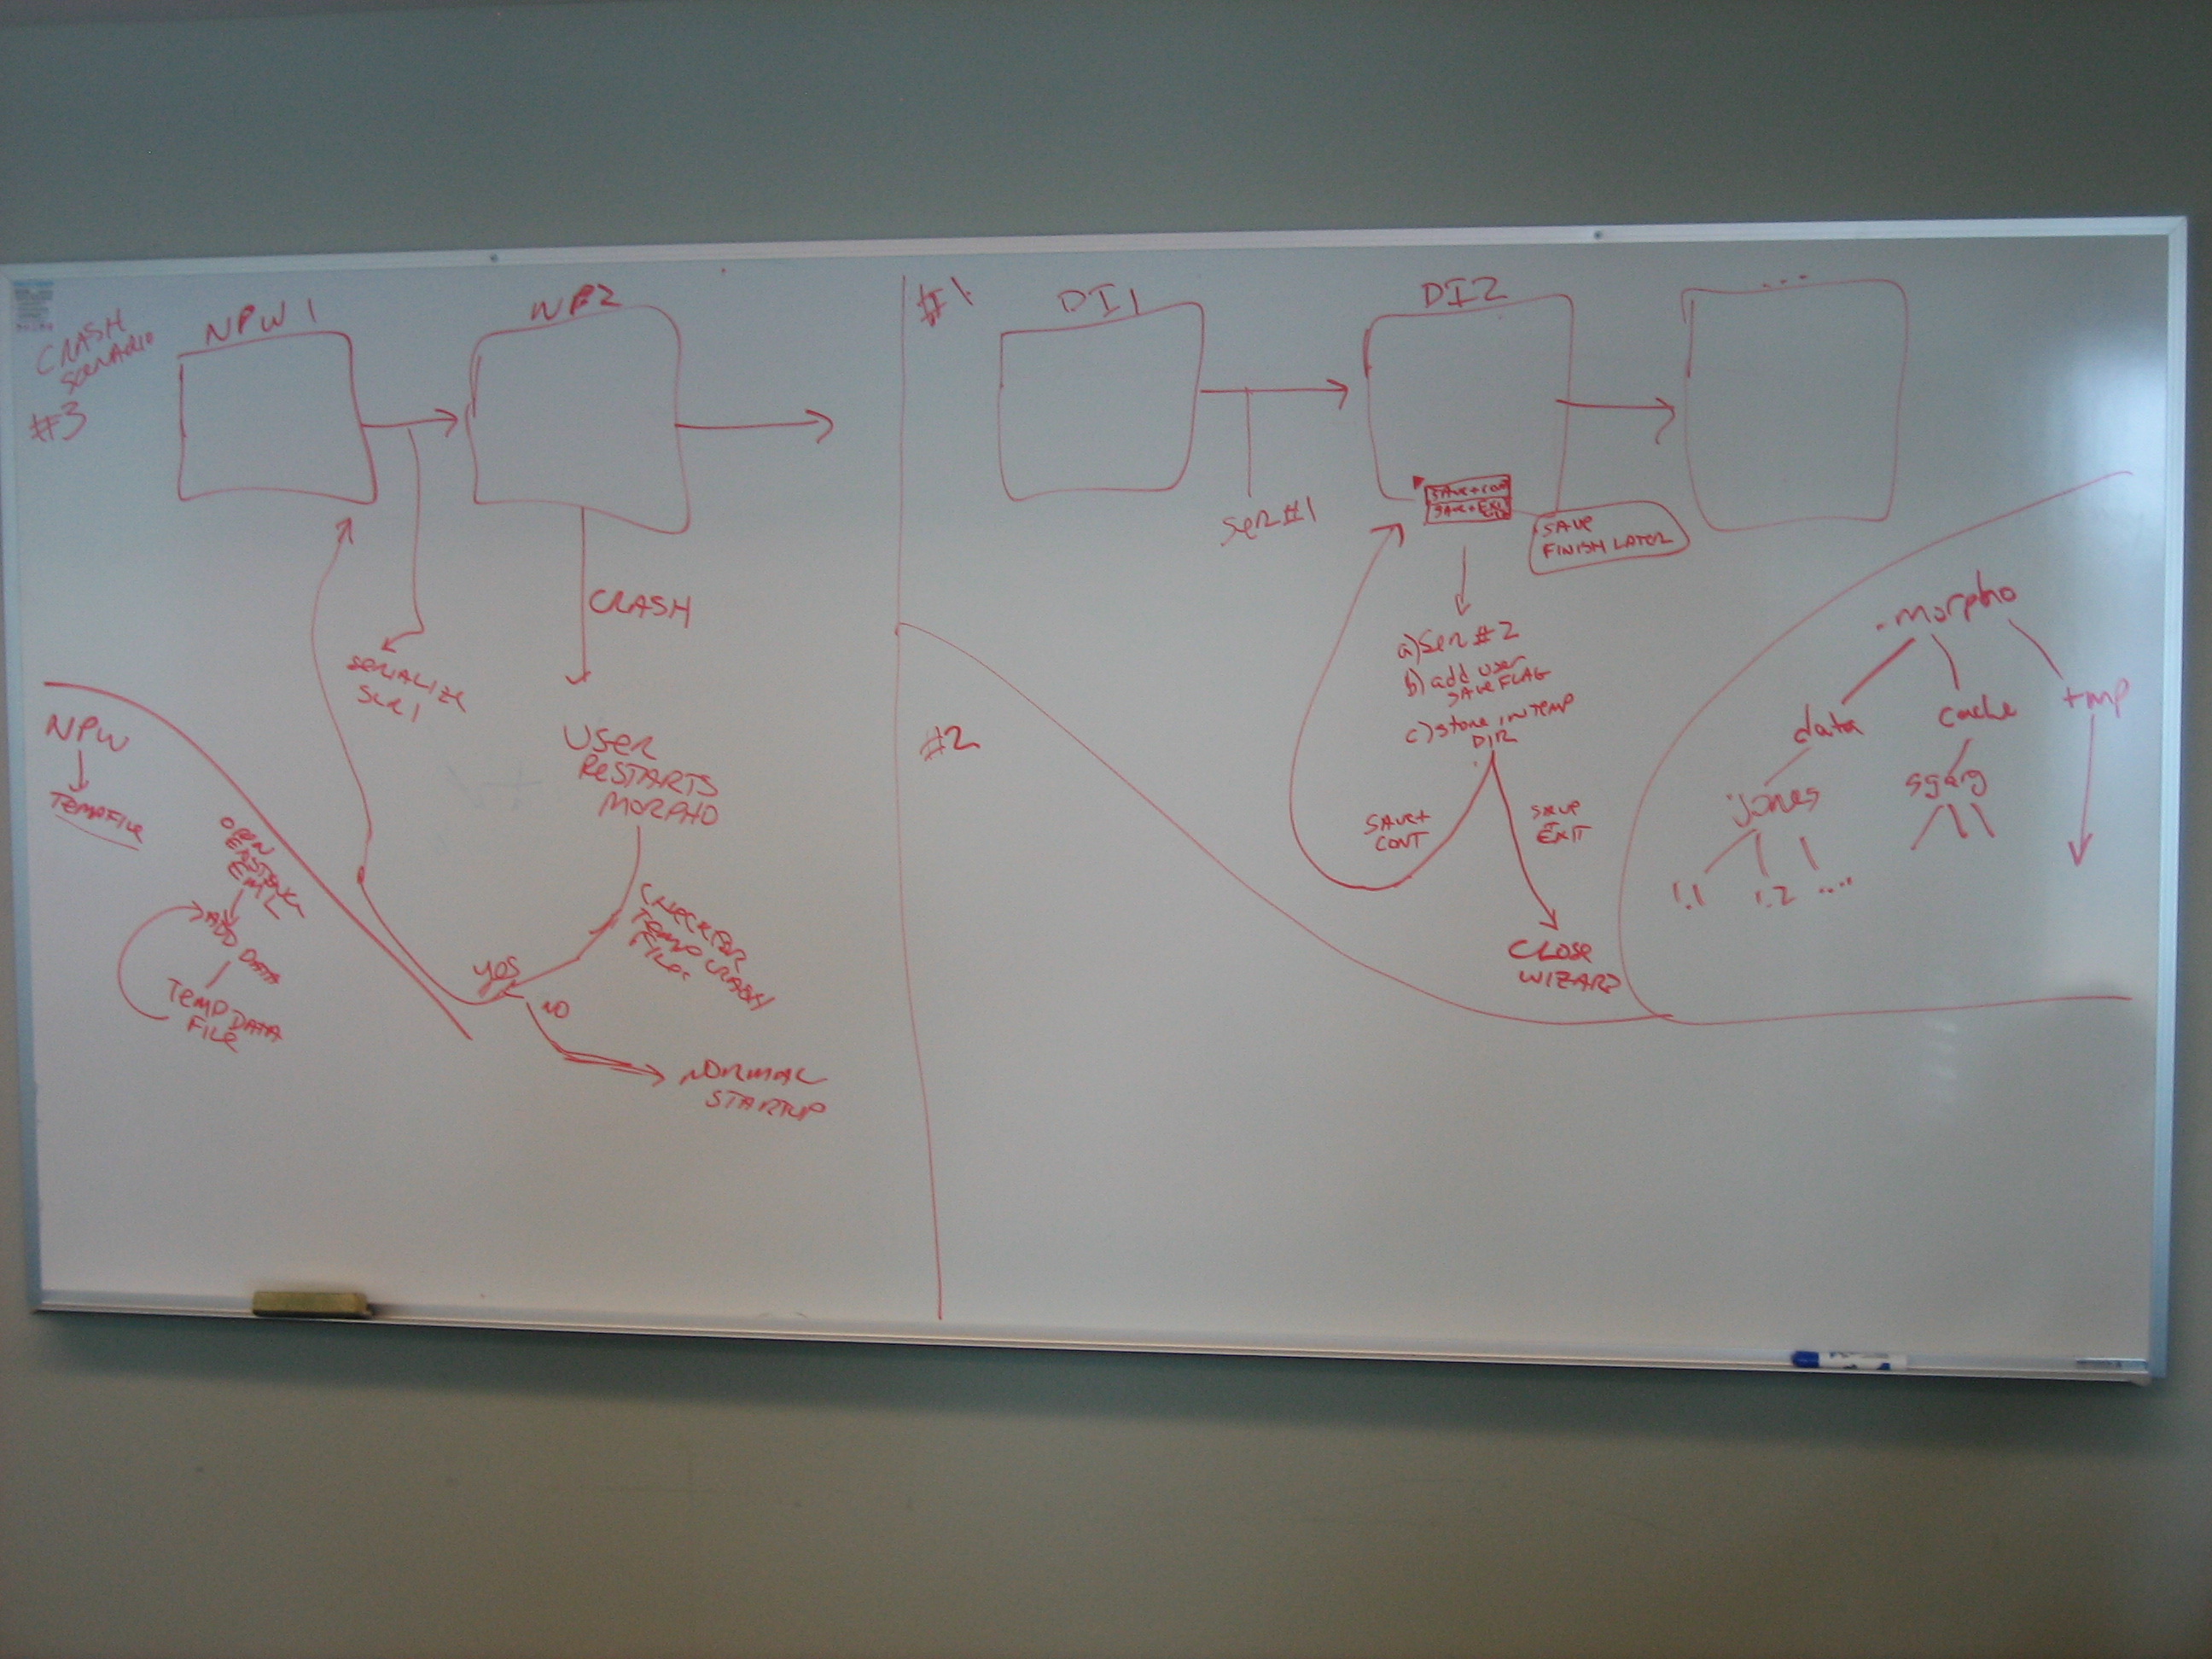 CRASH
SCENARIO
#3
NPW 1
WP2
CRASH
SERIALIZE
SCR 1
USER
RESTARTS
MORPHO
CHECK FOR
TEMP CRASH
FILES
YES
NO
NORMAL
STARTUP
NPW
TEMP FILE
OPEN
EXISTING
EML
ADD DATA
TEMP DATA
FILE
#1
DI1
DI2
...
SER #1
SAVE+CONT
SAVE+EXIT
SAVE
FINISH LATER
a) Ser #2
b) add user
SAVE FLAG
c) store in TEMP
DIR
SAVE+
CONT
SAVE
EXIT
CLOSE
WIZARD
#2
.morpho
data
cache
tmp
jones
sgarg
1.1
1.2
....